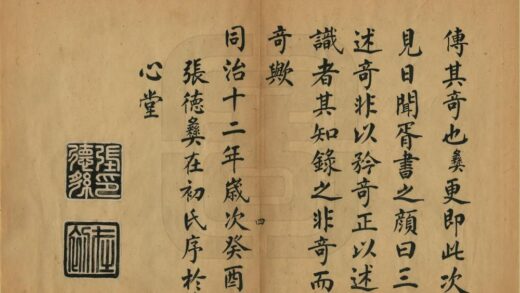 傳其奇也彝更即此次
見日聞胥書之顏曰三
述奇非以矜奇正以述
識者其知錄之非奇而
奇歟
四
同治十二年歲次癸酉
張德彝在初氏序於
心堂
張印德彝
在初